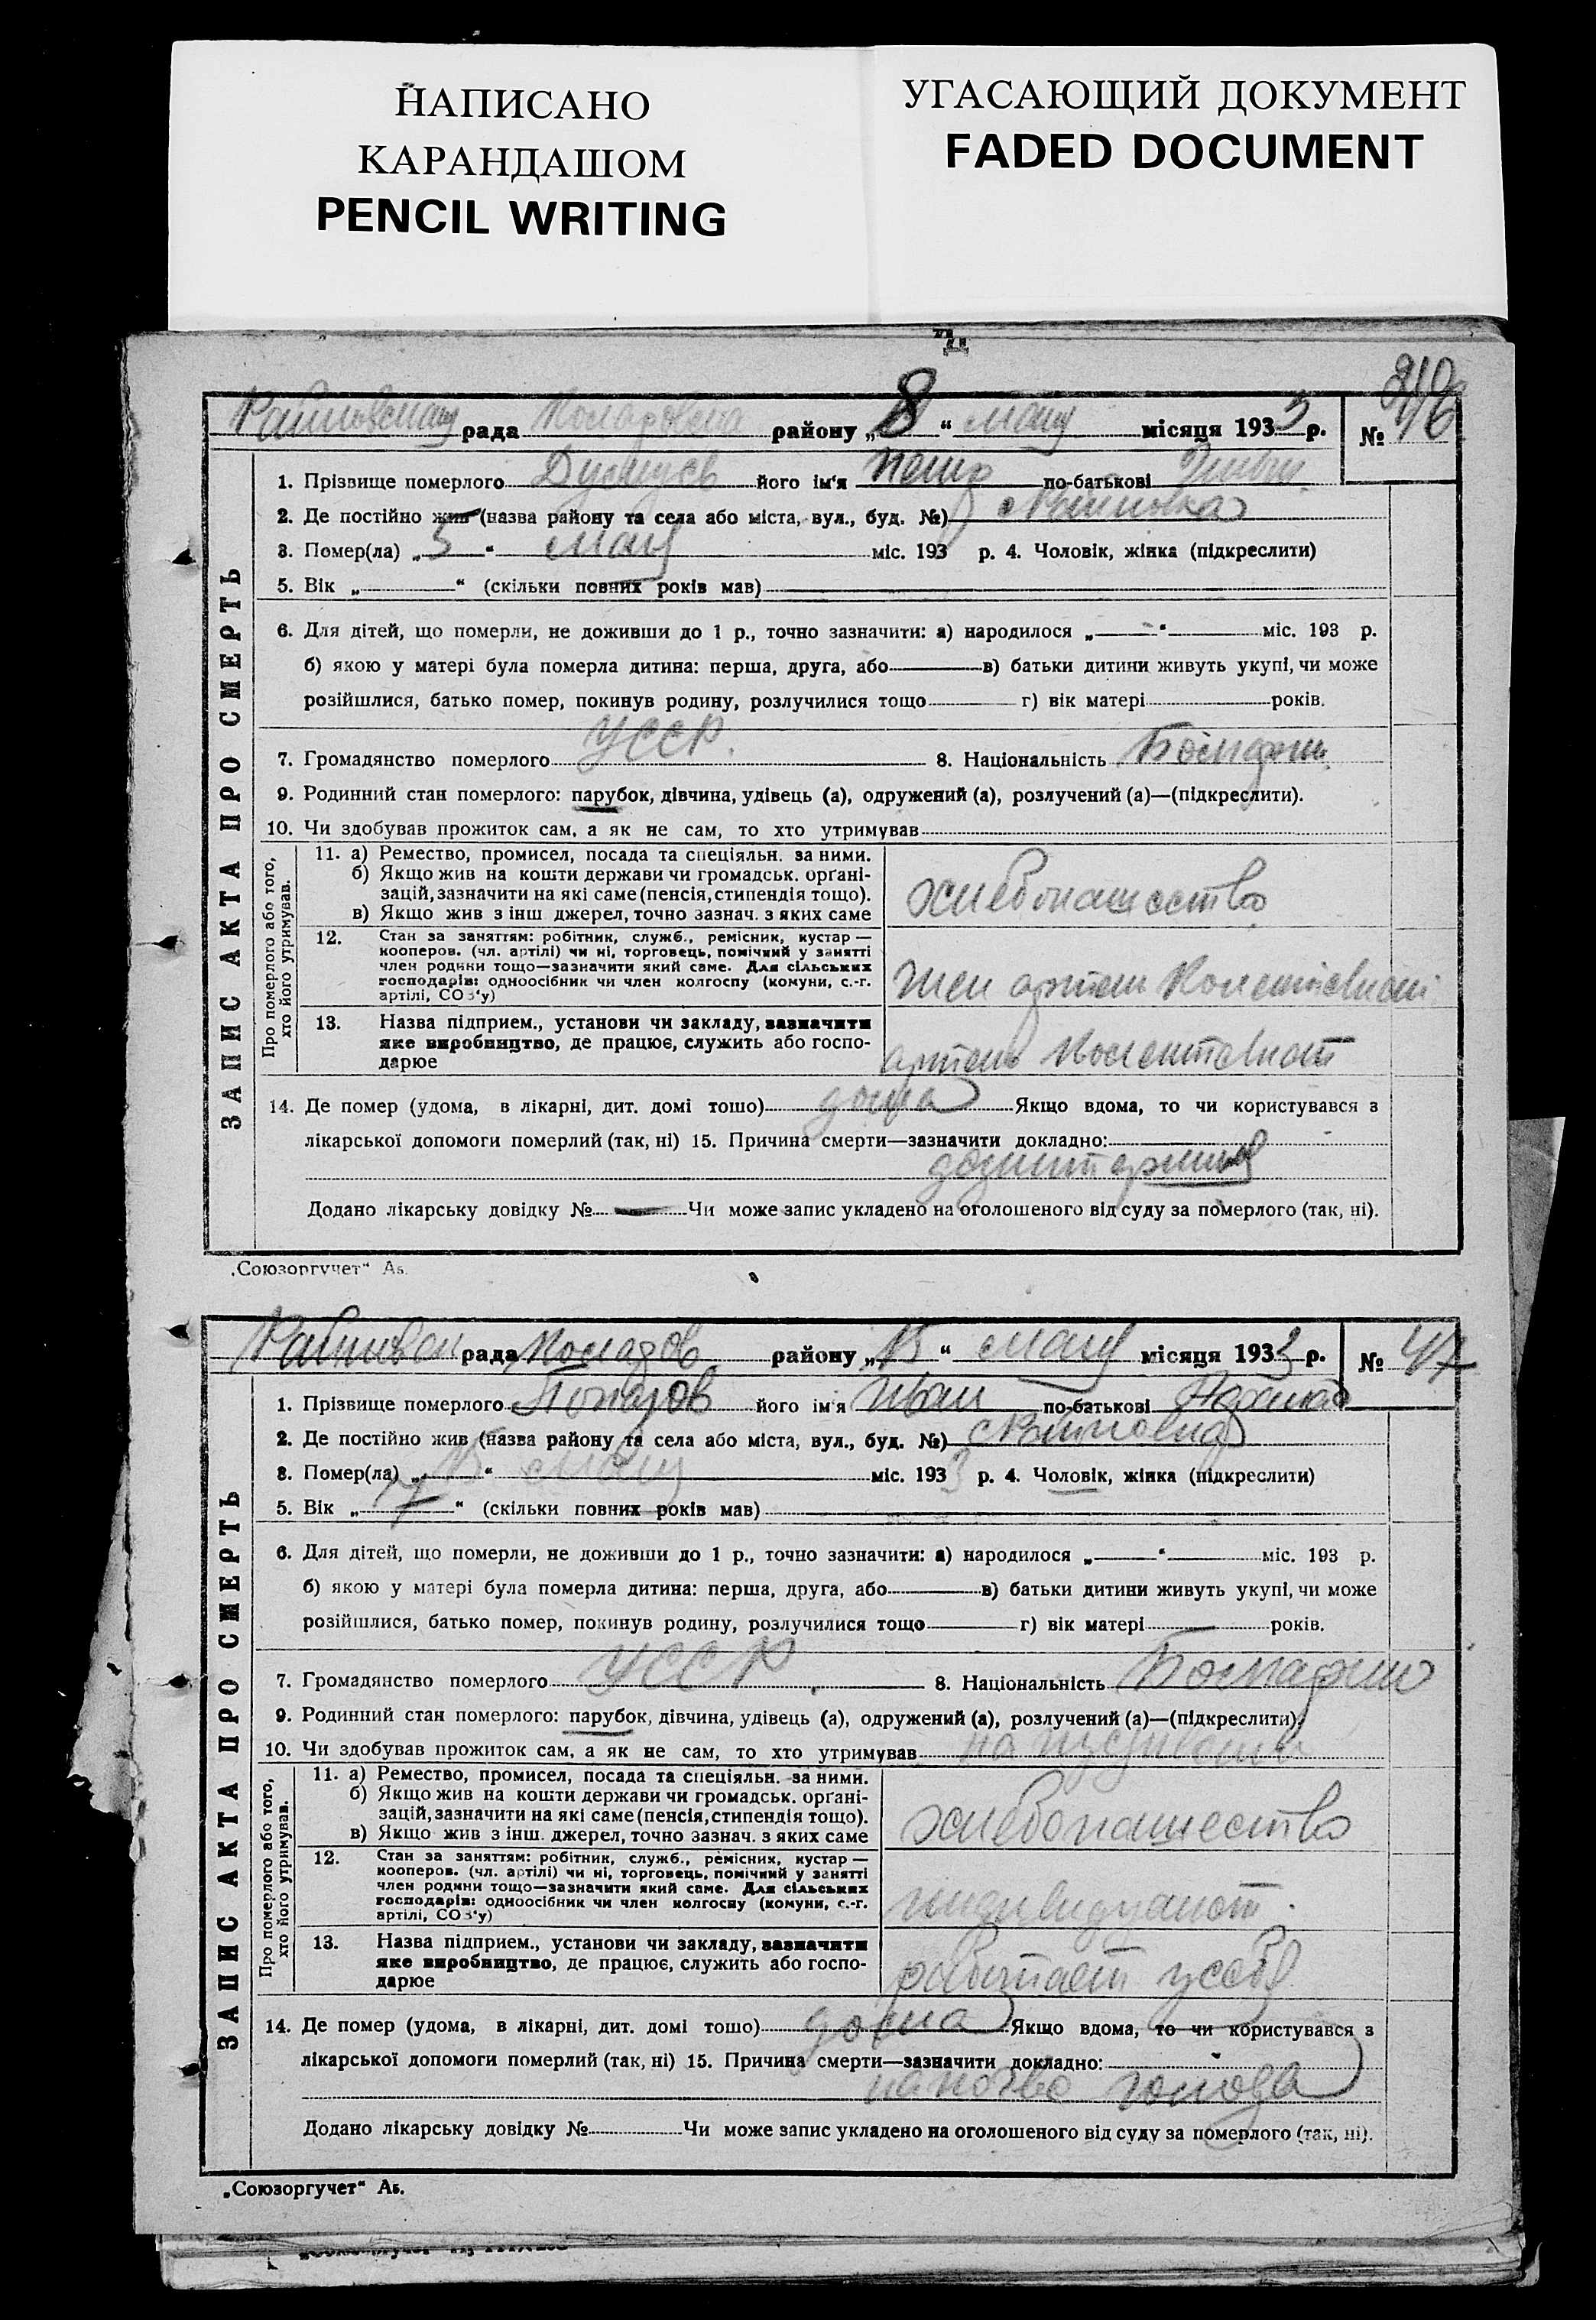 НАПИСАНО
КАРАНДАШОМ
PENCIL WRITING
УГАСАЮЩИЙ ДОКУМЕНТ
FADED DOCUMENT
рада району „8“ мая місяця 1933 р. № 46
ЗАПИС АКТА ПРО СМЕРТЬ
1. Прізвище померлого його ім'я Петр по-батькові
2. Де постійно жив (назва району та села або міста, вул., буд. №)
3. Помер(ла) „5“ мая міс. 193 р. 4. Чоловік, жінка (підкреслити)
5. Вік „—“ (скільки повних років мав)
6. Для дітей, що померли, не доживши до 1 р., точно зазначити: а) народилося „—“ міс. 193 р.
б) якою у матері була померла дитина: перша, друга, або в) батьки дитини живуть укупі, чи може
розійшлися, батько помер, покинув родину, розлучилися тощо г) вік матері років.
7. Громадянство померлого УССР. 8. Національність Болгарин
9. Родинний стан померлого: парубок, дівчина, удівець (а), одружений (а), розлучений (а)—(підкреслити).
10. Чи здобував прожиток сам, а як не сам, то хто утримував
Про померлого або того, хто його утримував.
11. а) Ремество, промисел, посада та спеціяльн. за ними.
б) Якщо жив на кошти держави чи громадськ. орґані-
зацій, зазначити на які саме (пенсія, стипендія тощо).
в) Якщо жив з інш джерел, точно зазнач. з яких саме
хлебопашество
12. Стан за заняттям: робітник, служб., ремісник, кустар —
кооперов. (чл. артілі) чи ні, торговець, помічний у занятті
член родини тощо—зазначити який саме. Для сільських
господарів: одноосібник чи член колгоспу (комуни, с.-г.
артілі, СОЗ'у)
член артели
13. Назва підприєм., установи чи закладу, зазначити
яке виробництво, де працює, служить або госпо-
дарює
артель
14. Де помер (удома, в лікарні, дит. домі тощо) дома Якщо вдома, то чи користувався з
лікарської допомоги померлий (так, ні) 15. Причина смерти—зазначити докладно:
Додано лікарську довідку № — Чи може запис укладено на оголошеного від суду за померлого (так, ні).
„Союзоргучет“ Аб.
рада району „15“ мая місяця 1933 р. № 47
ЗАПИС АКТА ПРО СМЕРТЬ
1. Прізвище померлого його ім'я Иван по-батькові
2. Де постійно жив (назва району та села або міста, вул., буд. №)
3. Помер(ла) „15“ мая міс. 1933 р. 4. Чоловік, жінка (підкреслити)
5. Вік „17“ (скільки повних років мав)
6. Для дітей, що померли, не доживши до 1 р., точно зазначити: а) народилося „—“ міс. 193 р.
б) якою у матері була померла дитина: перша, друга, або в) батьки дитини живуть укупі, чи може
розійшлися, батько помер, покинув родину, розлучилися тощо г) вік матері років.
7. Громадянство померлого УССР. 8. Національність Болгарин
9. Родинний стан померлого: парубок, дівчина, удівець (а), одружений (а), розлучений (а)—(підкреслити).
10. Чи здобував прожиток сам, а як не сам, то хто утримував на
Про померлого або того, хто його утримував.
11. а) Ремество, промисел, посада та спеціяльн. за ними.
б) Якщо жив на кошти держави чи громадськ. орґані-
зацій, зазначити на які саме (пенсія, стипендія тощо).
в) Якщо жив з інш. джерел, точно зазнач. з яких саме
хлебопашество
12. Стан за заняттям: робітник, служб., ремісник, кустар —
кооперов. (чл. артілі) чи ні, торговець, помічний у занятті
член родини тощо—зазначити який саме. Для сільських
господарів: одноосібник чи член колгоспу (комуни, с.-г.
артілі, СОЗ'у)
13. Назва підприєм., установи чи закладу, зазначити
яке виробництво, де працює, служить або госпо-
дарює
работает у себя
14. Де помер (удома, в лікарні, дит. домі тощо) дома Якщо вдома, то чи користувався з
лікарської допомоги померлий (так, ні) 15. Причина смерти—зазначити докладно:
голода
Додано лікарську довідку № Чи може запис укладено на оголошеного від суду за померлого (так, ні).
„Союзоргучет“ Аб.